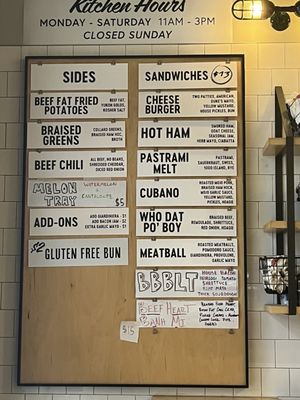 Kitchen Hours
MONDAY - SATURDAY 11AM - 3PM
CLOSED SUNDAY
SIDES
BEEF FAT FRIED
POTATOES
BEEF FAT,
YUKON GOLDS,
KOSHER SALT
BRAISED
GREENS
COLLARD GREENS,
BRAISED HAM HOC,
BROTH
BEEF CHILI
ALL BEEF, NO BEANS,
SHREDDED CHEDDAR,
DICED RED ONION
MELON
TRAY
WATERMELON
+
CANTALOUPE
$5
ADD-ONS
ADD GIARDINIERA - $1
ADD BACON - $2
EXTRA GARLIC MAYO - $1
$2 GLUTEN FREE BUN
SANDWICHES $13
CHEESE
BURGER
TWO PATTIES, AMERICAN,
DUKE'S MAYO,
YELLOW MUSTARD,
HOUSE PICKLES, RED ONION
HOT HAM
SMOKED HAM,
GOAT CHEESE,
SEASONAL JAM,
HERB MAYO, CIABATTA
PASTRAMI
MELT
PASTRAMI,
SAUERKRAUT, SWISS,
1000 ISLAND, RYE
CUBANO
ROASTED MOJO PORK,
BRAISED HAM HOCK,
SWISS, MOJO MAYO,
YELLOW MUSTARD,
PICKLES, HOAGIE
WHO DAT
PO' BOY
BRAISED BEEF,
REMOULADE, SHRETTUCE,
RED ONION, HOAGIE
MEATBALL
ROASTED MEATBALLS,
POMODORO SAUCE,
GIARDINIERA, PROVOLONE,
GARLIC MAYO
BBBLT
HOUSE BACON
HEIRLOOM TOMATO
SHRETTUCE
THICK SOURDOUGH
BEEF HEART
BANH MI
$15